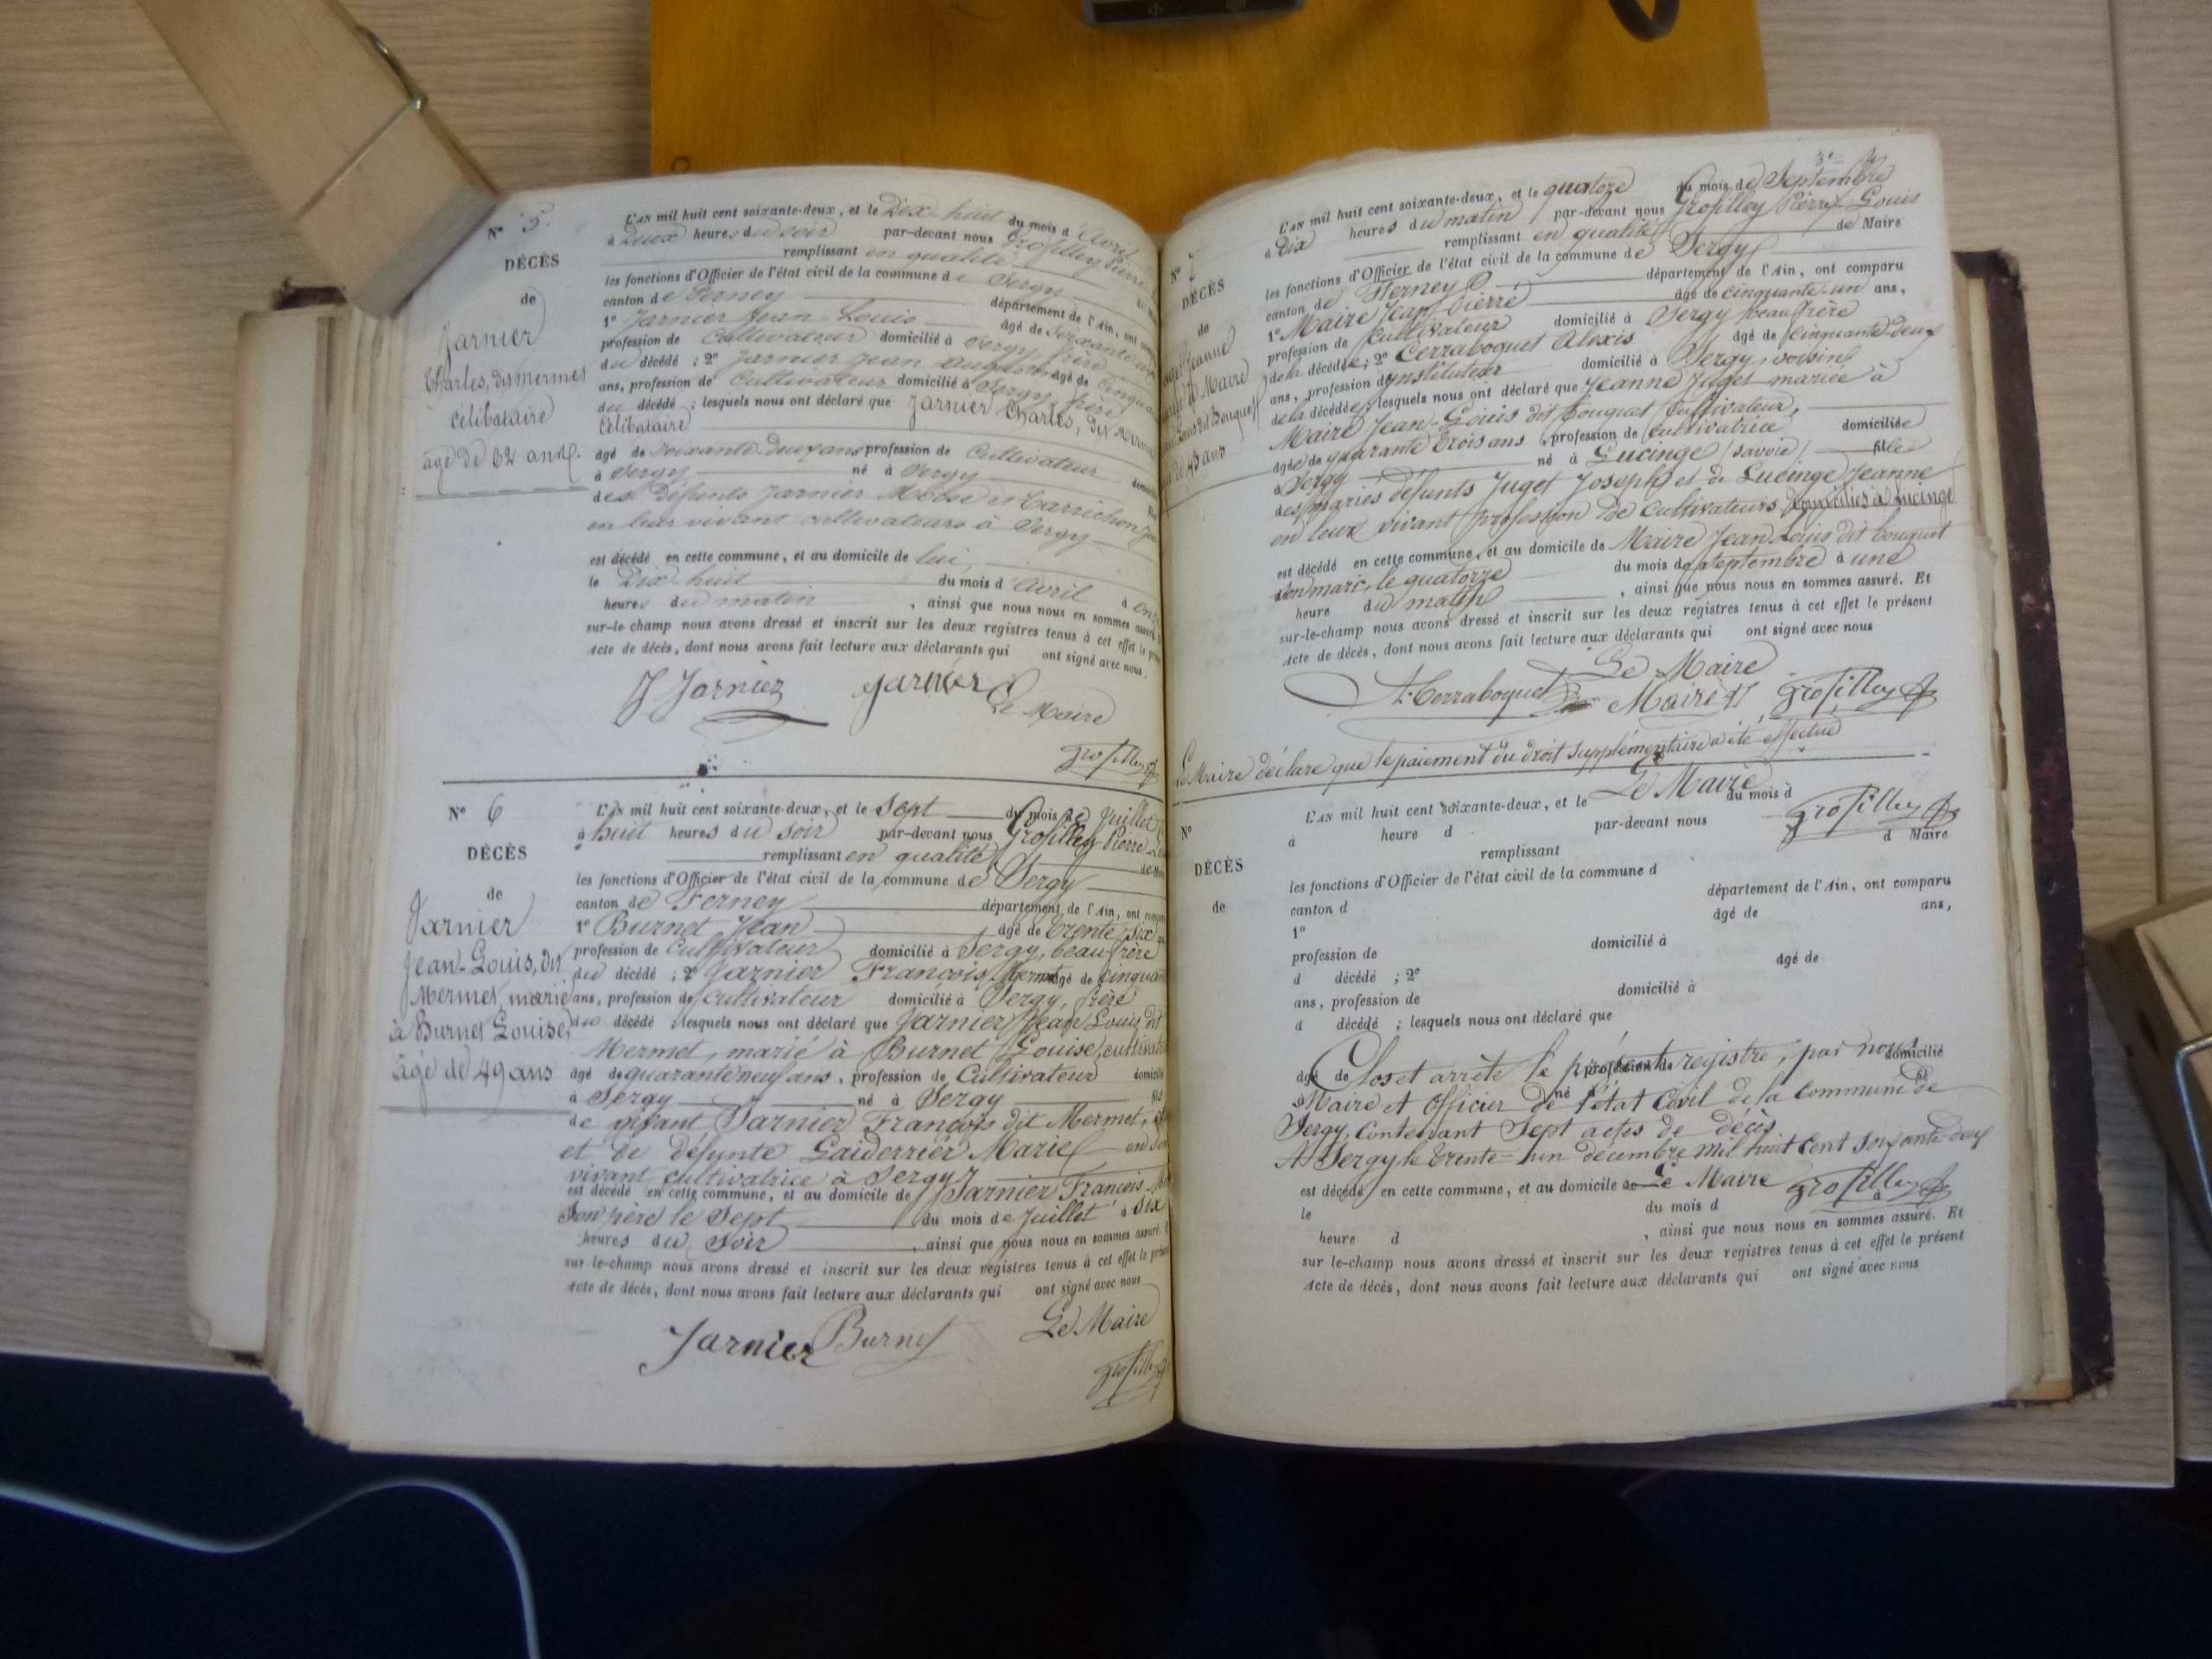 N° 5.
DÉCÈS
de
Jarnier
Charles, dit mermet
Célibataire
âgé de 62 ans.
L'AN mil huit cent soixante-deux, et le Dix-huit du mois d'Avril
à Deux heures du soir par-devant nous Grosfilley Pierre
remplissant en qualité
les fonctions d'Officier de l'état civil de la commune de Sergy
canton de Ferney département de l'Ain, ont
1° Jarnier Jean-Louis âgé de Soixante
profession de Cultivateur domicilié à Sergy, frère
du décédé ; 2° Jarnier Jean âgé de
ans, profession de Cultivateur domicilié à Sergy, frère
du décédé ; lesquels nous ont déclaré que Jarnier Charles, dit
Célibataire
âgé de soixante-deux ans profession de Cultivateur
à Sergy né à Sergy
des défunts Jarnier et Carrichon
en leur vivant cultivateurs à Sergy
est décédé en cette commune, et au domicile de lui,
le Dix-huit du mois d'Avril à
heures du matin, ainsi que nous nous en sommes
sur-le-champ nous avons dressé et inscrit sur les deux registres tenus à cet effet le
Acte de décès, dont nous avons fait lecture aux déclarants qui ont signé avec nous.
J Jarnier Jarnier
Le Maire
Grosfilley
N° 6
DÉCÈS
de
Jarnier
Jean-Louis, dit
Mermet, marié
à Burnet Louise,
âgé de 49 ans
L'AN mil huit cent soixante-deux, et le Sept du mois de Juillet
à huit heures du soir par-devant nous Grosfilley Pierre
remplissant en qualité de
les fonctions d'Officier de l'état civil de la commune de Sergy
canton de Ferney département de l'Ain, ont
1° Burnet Jean âgé de trente-six
profession de Cultivateur domicilié à Sergy, beau frère
du décédé ; 2° Jarnier François Mermet âgé de
ans, profession de cultivateur domicilié à Sergy, frère
du décédé ; lesquels nous ont déclaré que Jarnier Jean Louis dit
Mermet, marié à Burnet Louise,
âgé de quarante neuf ans, profession de Cultivateur
à Sergy né à Sergy fils
de vivant Jarnier François dit Mermet,
et de défunte Gaiderrier Marie en son
vivant cultivatrice à Sergy
est décédé en cette commune, et au domicile de Jarnier François
Son père le Sept du mois de Juillet à Six
heures du Soir, ainsi que nous nous en sommes assuré.
sur-le-champ nous avons dressé et inscrit sur les deux registres tenus à cet effet le
Acte de décès, dont nous avons fait lecture aux déclarants qui ont signé avec nous
Jarnier Burnet
Le Maire
Grosfilley
N°
DÉCÈS
de
Jeanne
Maire
ans
L'AN mil huit cent soixante-deux, et le quatoze du mois de Septembre
à Dix heures du matin par-devant nous Grosfilley Pierre-Louis
remplissant en qualité de Maire
les fonctions d'Officier de l'état civil de la commune de Sergy
canton de Ferney département de l'Ain, ont comparu
1° Maire Jean Pierre âgé de cinquante-un ans,
profession de Cultivateur domicilié à Sergy beau frère
de la décédée ; 2° Cerraboquet Alexis âgé de cinquante-deux
ans, profession d'instituteur domicilié à Sergy, voisin
de la décédée ; lesquels nous ont déclaré que Jeanne Juget mariée à
Maire Jean-Louis dit bouquet Cultivateur,
âgée de quarante trois ans, profession de cultivatrice domiciliée
à Sergy né à Lucinge (Savoie) fille
des mariés défunts Juget Joseph et de Lucinge Jeanne
en leur vivant profession de Cultivateurs domiciliés à Lucinge
est décédé en cette commune, et au domicile de Maire Jean-Louis dit bouquet
Son mari, le quatorze du mois de Septembre à une
heure du matin, ainsi que nous nous en sommes assuré. Et
sur-le-champ nous avons dressé et inscrit sur les deux registres tenus à cet effet le présent
Acte de décès, dont nous avons fait lecture aux déclarants qui ont signé avec nous
Le Maire
A. Cerraboquet Maire Grosfilley
Le Maire déclare que le paiement du droit supplémentaire a été effectué
Le Maire
Grosfilley
N°
DÉCÈS
de
L'AN mil huit cent soixante-deux, et le du mois d
à heure d par-devant nous
remplissant d Maire
les fonctions d'Officier de l'état civil de la commune d
canton d département de l'Ain, ont comparu
1° âgé de ans,
profession de domicilié à
d décédé ; 2° âgé de
ans, profession de domicilié à
d décédé ; lesquels nous ont déclaré que
âgé de profession de domicilié
Clos et arrêté le présent registre, par nous
à né fil
Maire et Officier de l'état Civil de la Commune de
Sergy, Contenant Sept actes de décès
A Sergy le trente-un décembre mil huit cent soixante-deux
Le Maire Grosfilley
est décédé en cette commune, et au domicile de
le du mois d à
heure d , ainsi que nous nous en sommes assuré. Et
sur-le-champ nous avons dressé et inscrit sur les deux registres tenus à cet effet le présent
Acte de décès, dont nous avons fait lecture aux déclarants qui ont signé avec nous